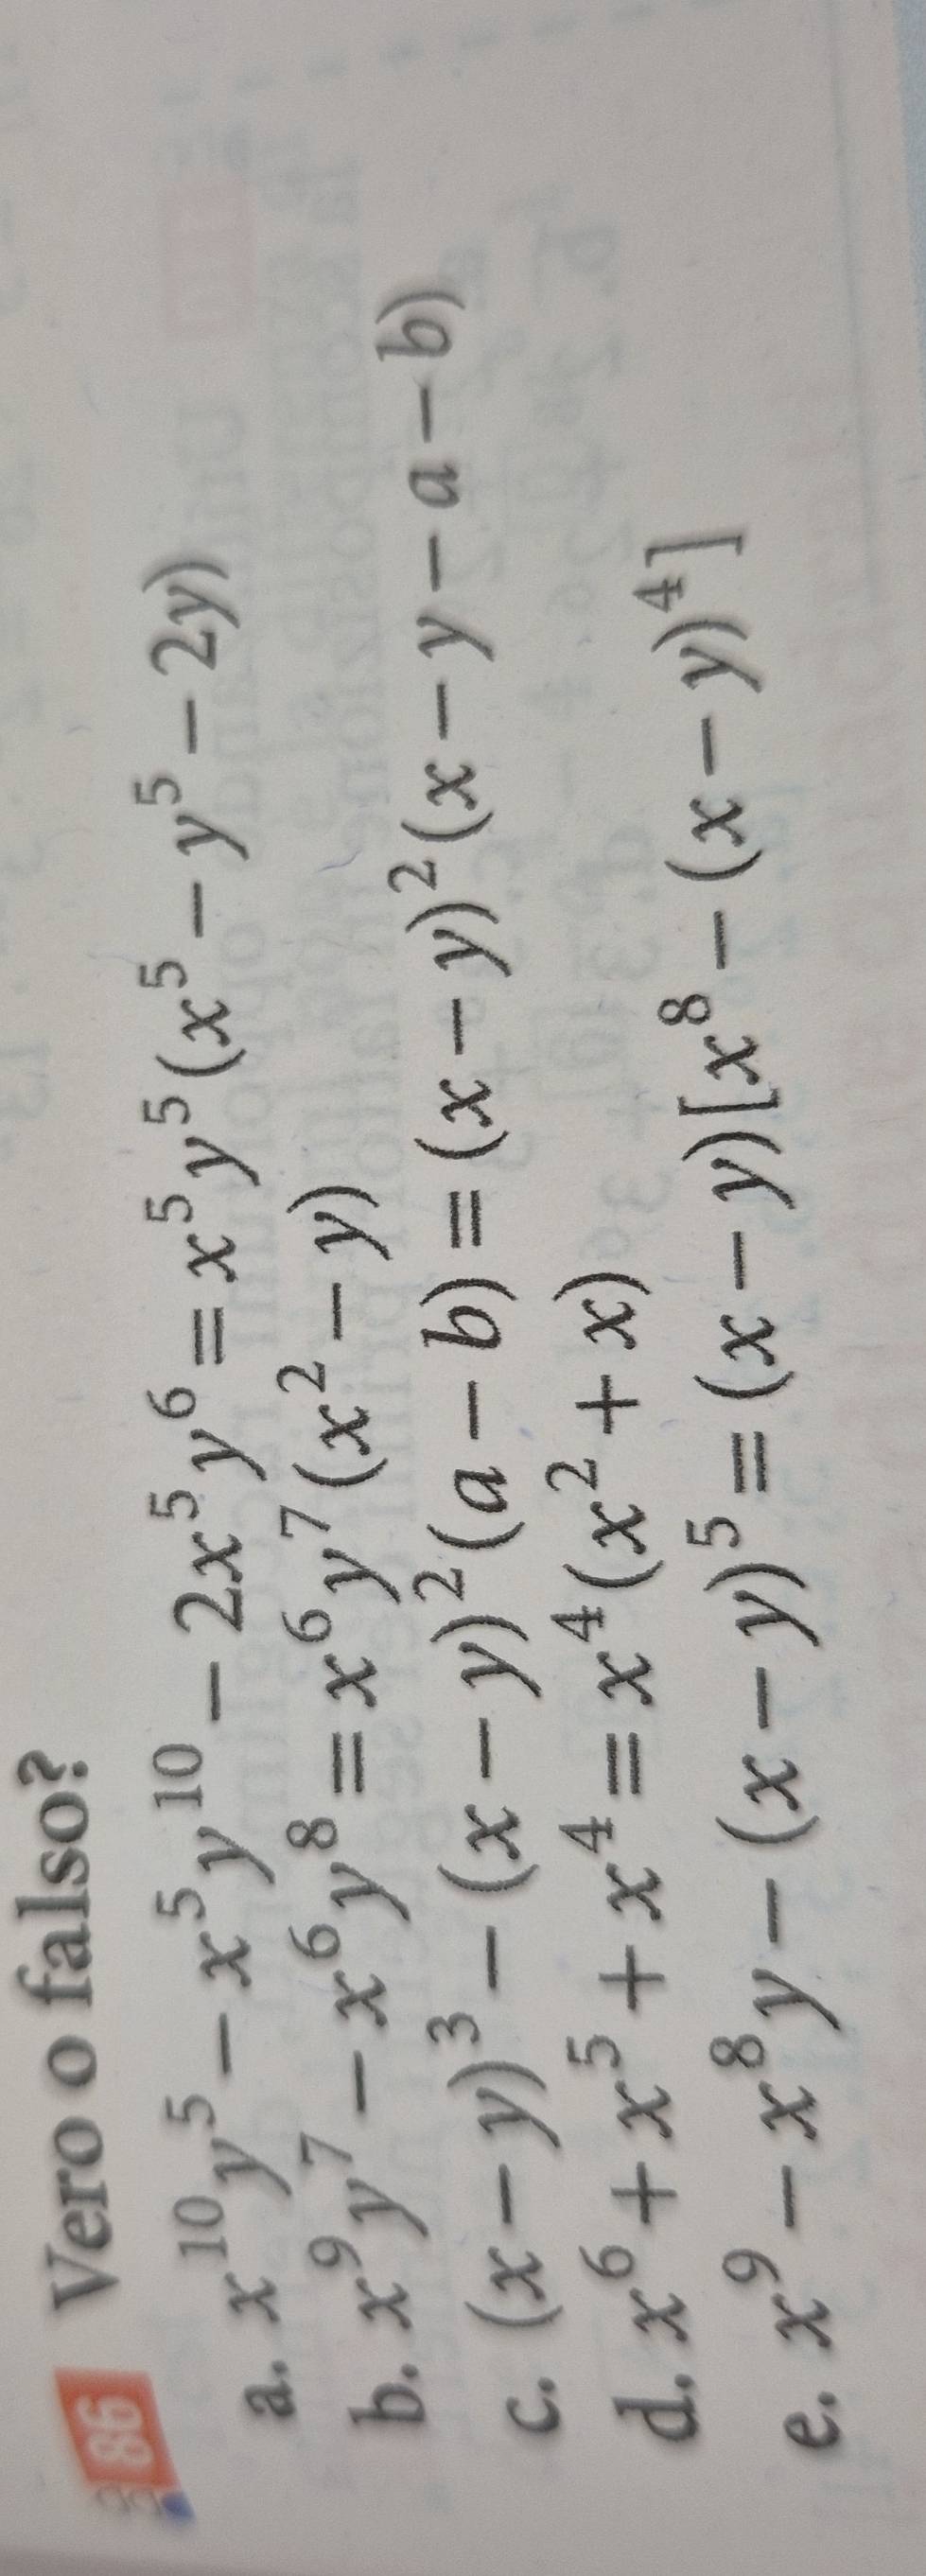 86 Vero o falso?
a. x¹⁰y⁵ − x⁵y¹⁰ − 2x⁵y⁶ = x⁵y⁵(x⁵ − y⁵ − 2y)
b. x⁹y⁷ − x⁶y⁸ = x⁶y⁷(x² − y)
c. (x − y)³ − (x − y)²(a − b) = (x − y)²(x − y − a − b)
d. x⁶ + x⁵ + x⁴ = x⁴(x² + x)
e. x⁹ − x⁸y − (x − y)⁵ = (x − y)[x⁸ − (x − y)⁴]